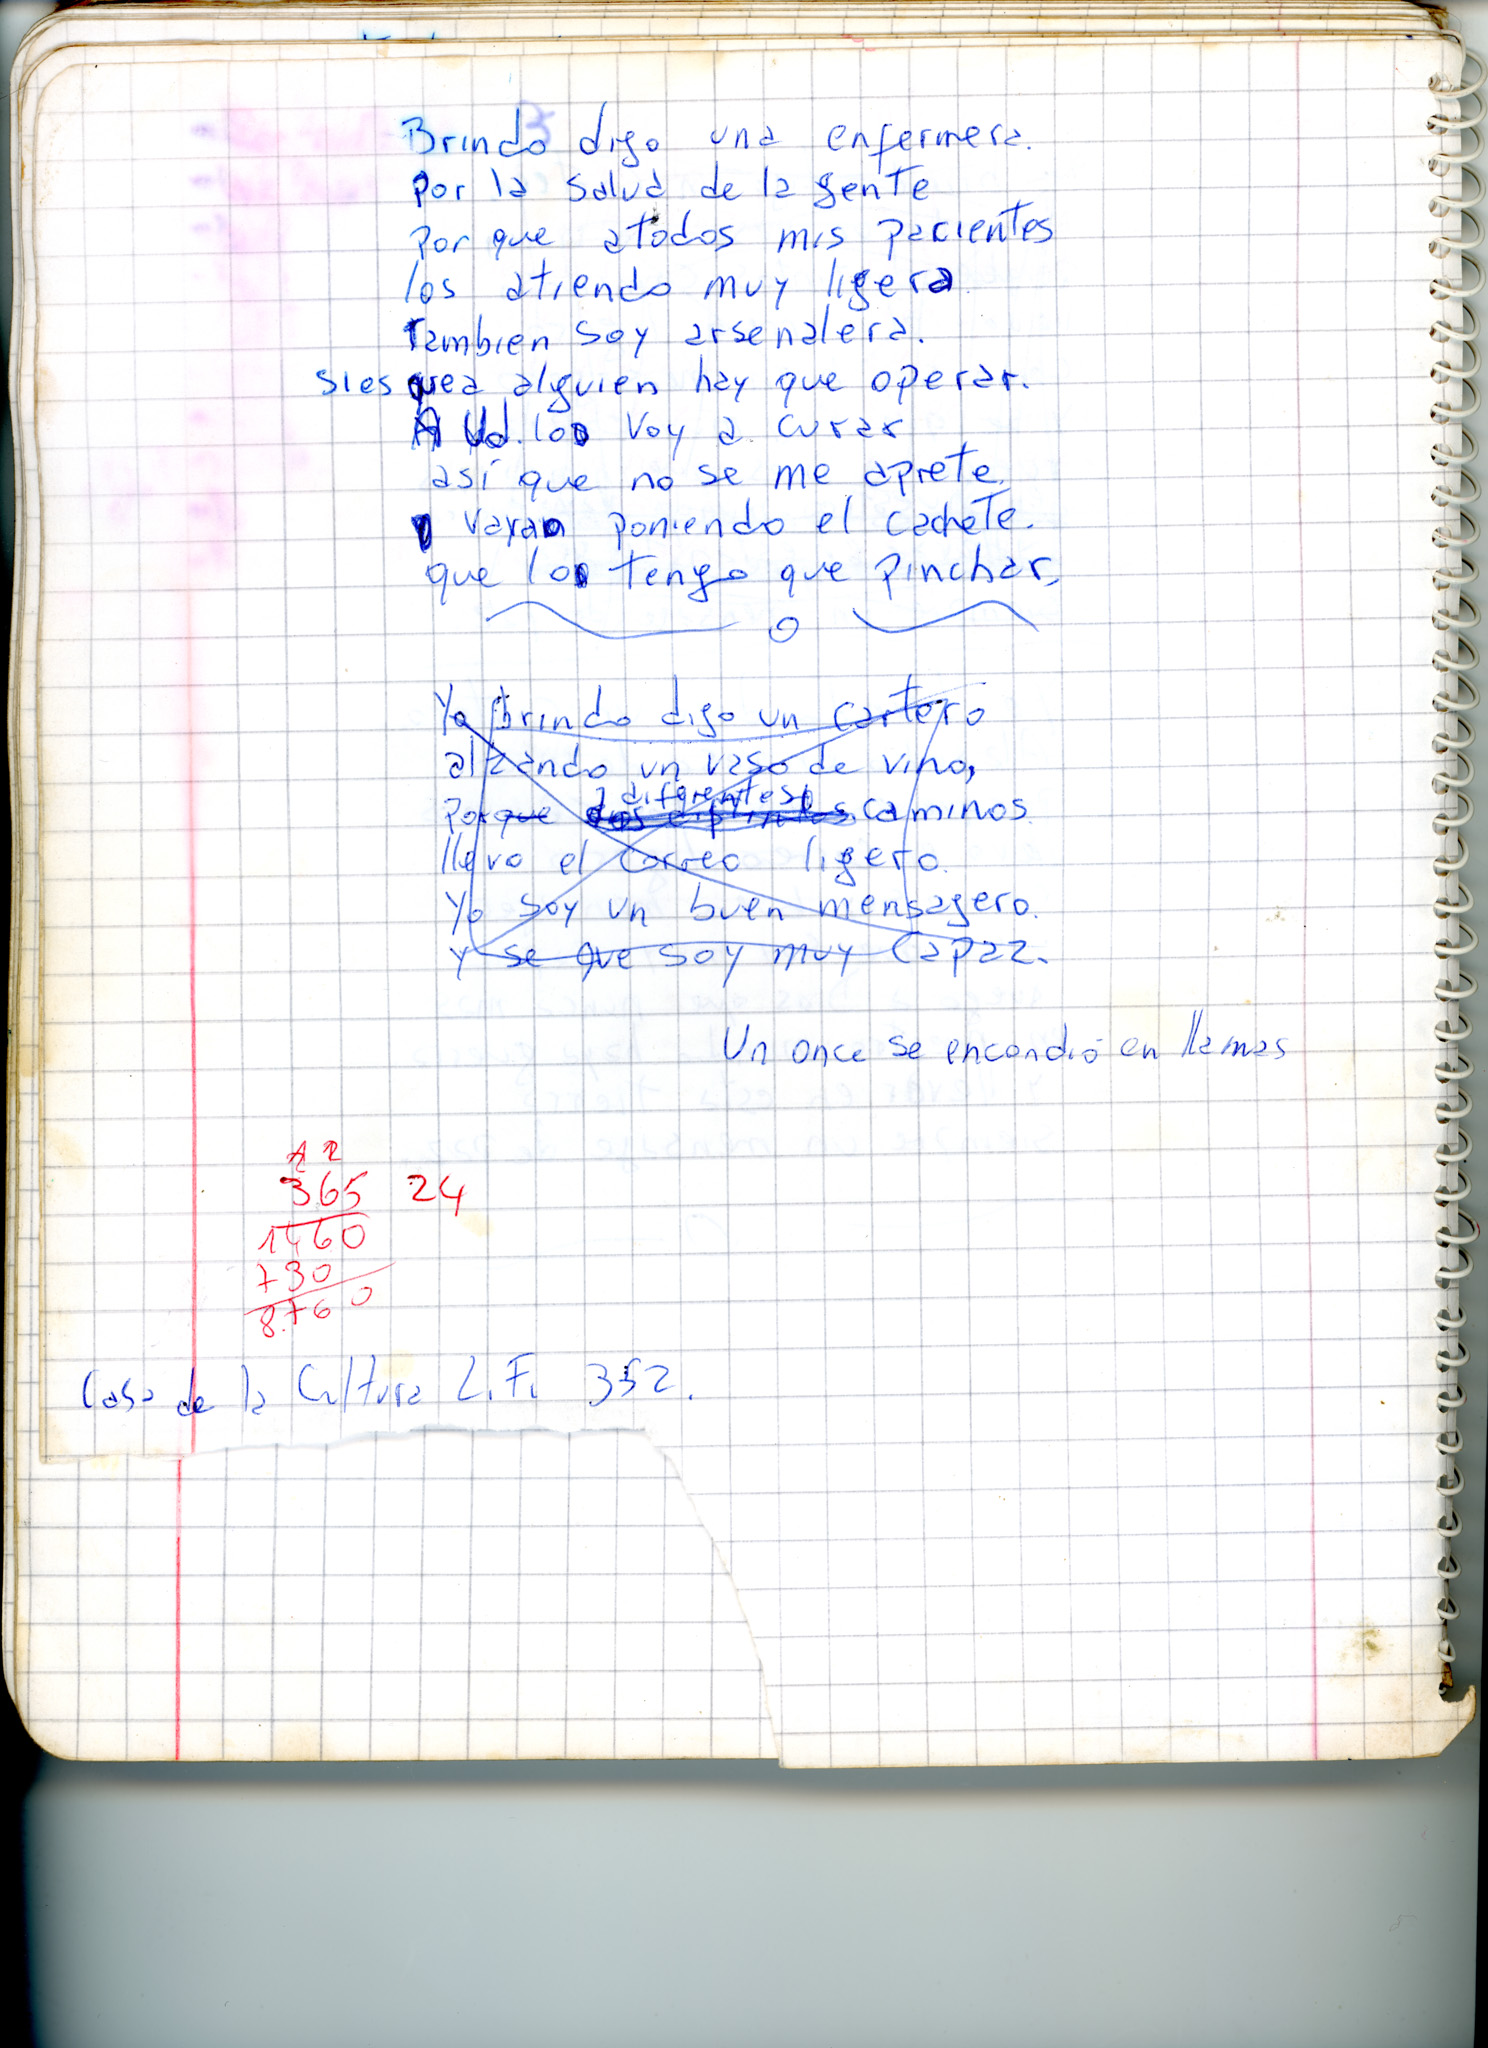 Brindo digo una enfermera.
por la salud de la gente
por que atodos mis pacientes
los atiendo muy ligera.
Tambien soy arsenalera.
sies quea alguien hay que operar.
A Ud. lo voy a curar
así que no se me aprete.
y vayan poniendo el cachete.
que lo tengo que pinchar,
Yo brindo digo un cartero
alzando un vaso de vino,
diferentes
porque caminos
llevo el correo ligero.
Yo soy un buen mensagero.
y se que soy muy capaz.
Un once se encondió en llamas
1 2
365 24
1460
730
8.760
Casa de la Cultura L.F. 352.